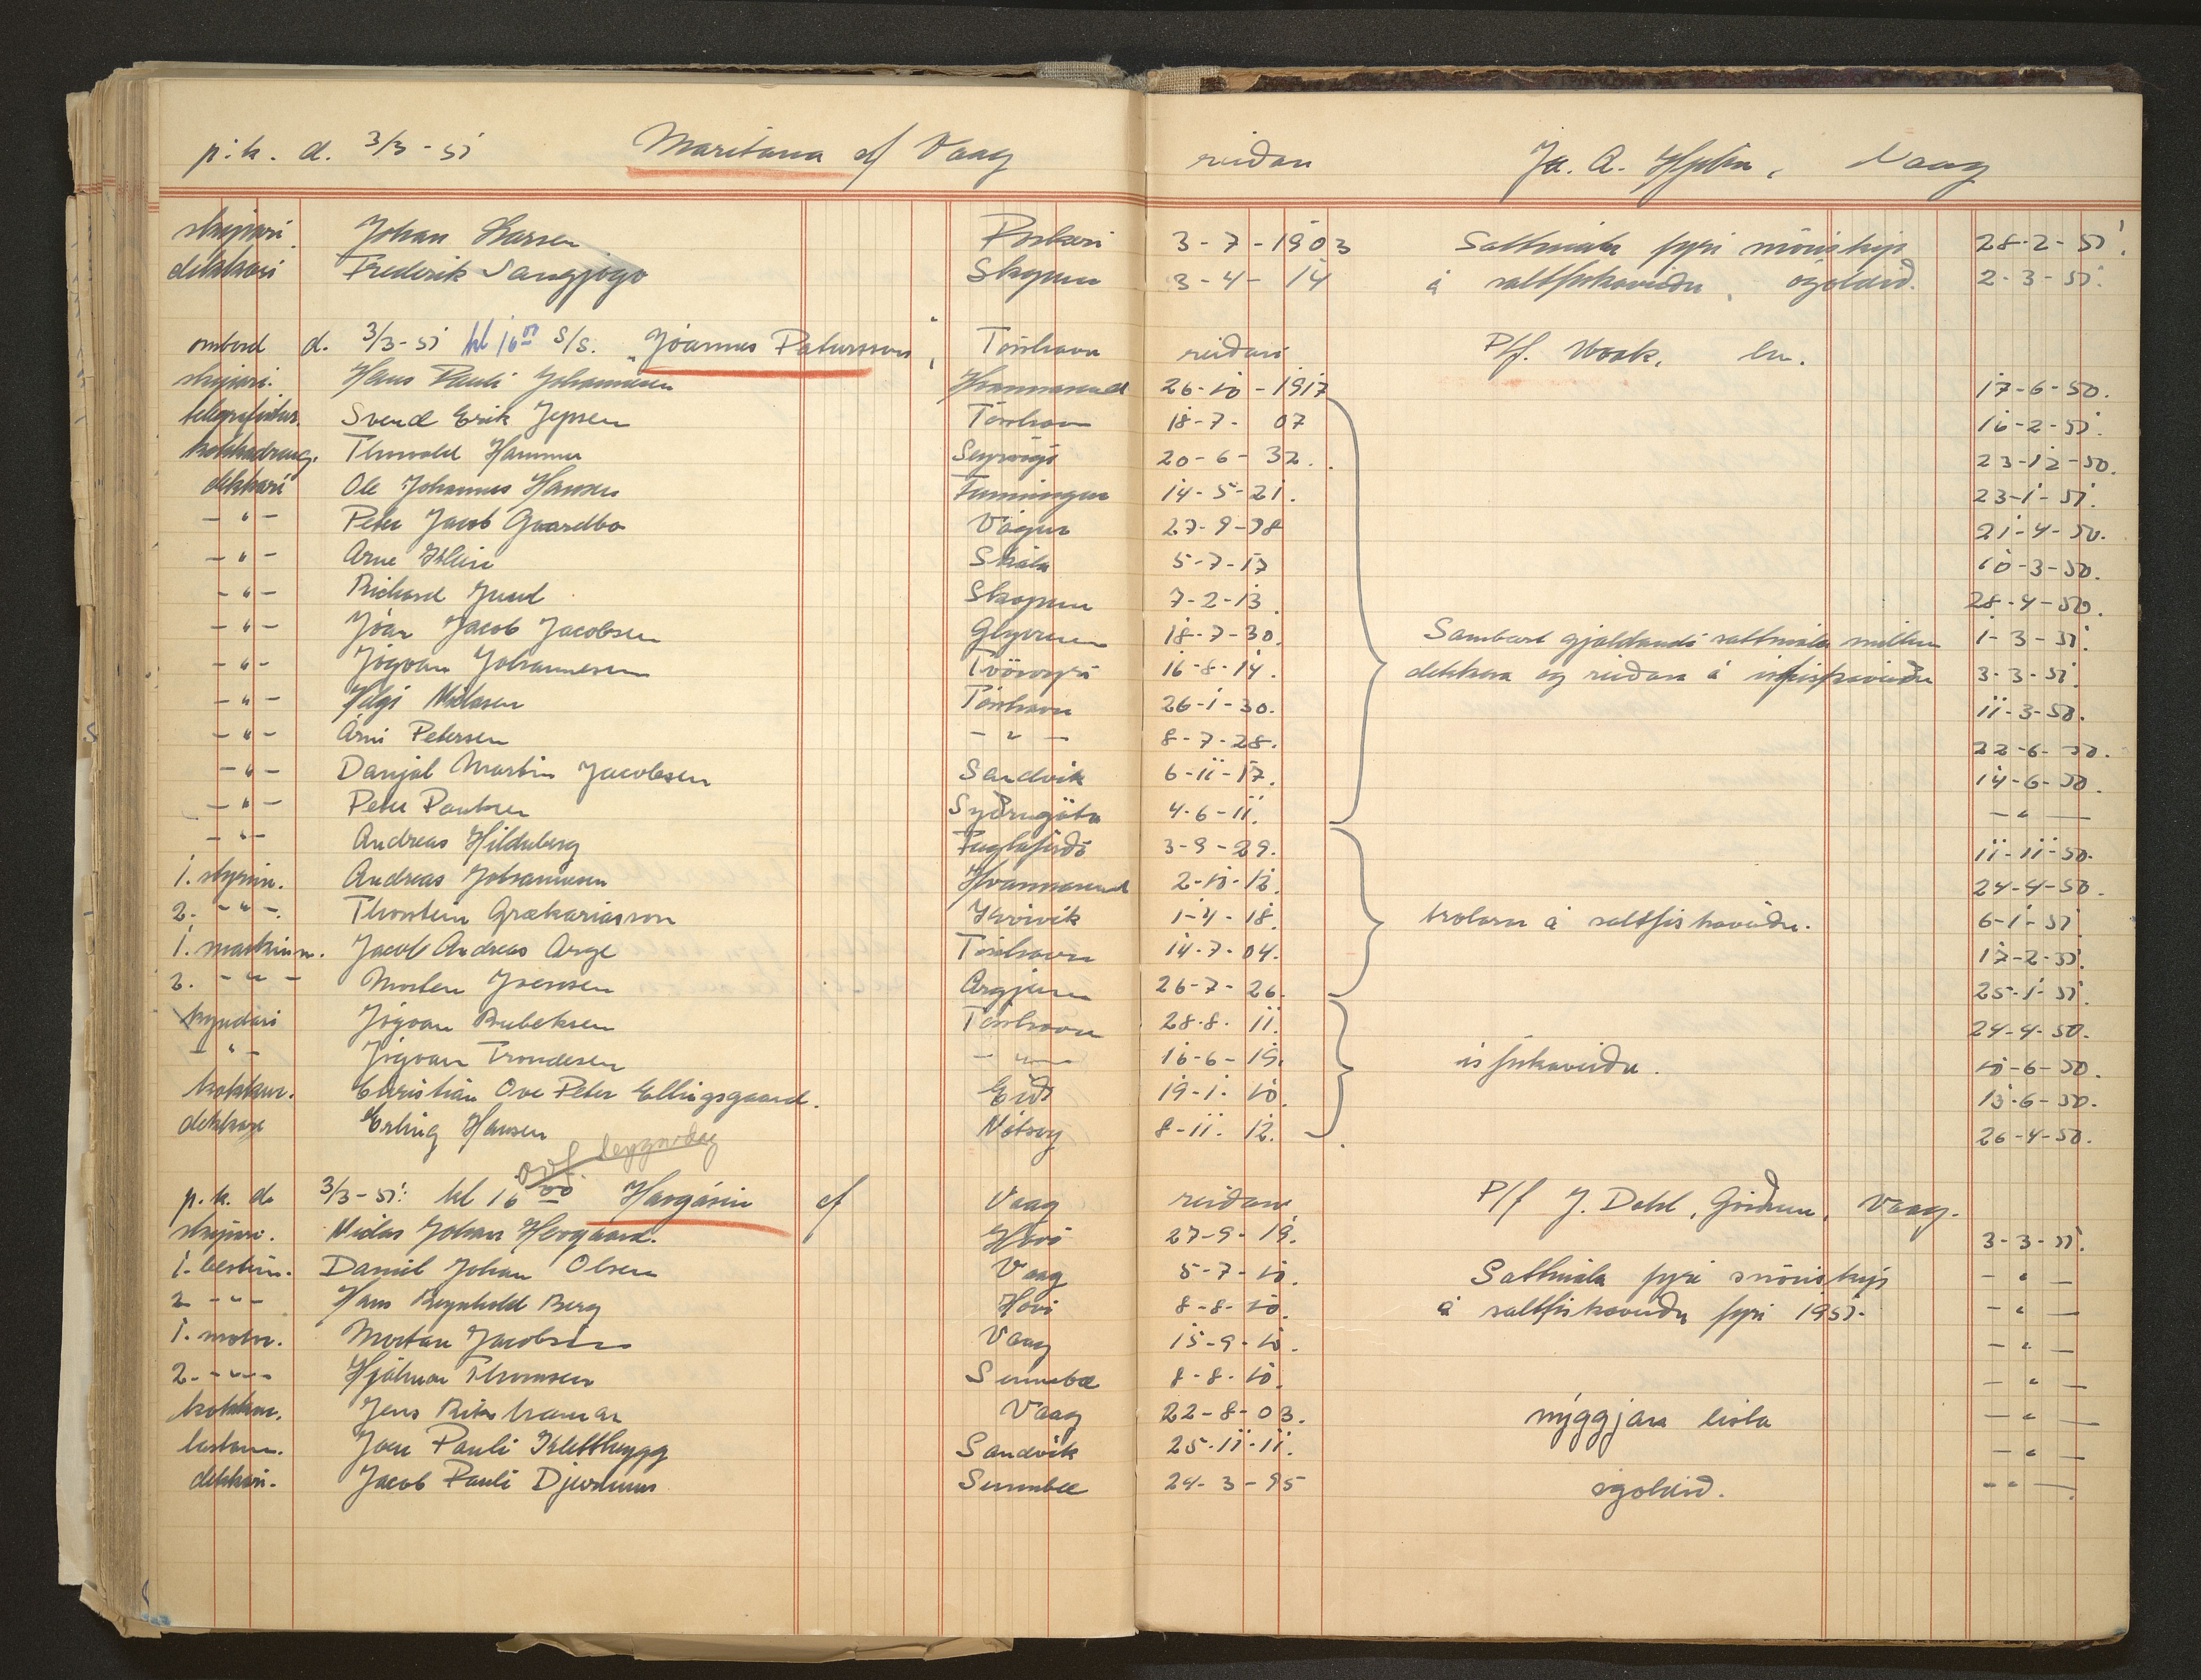 p.k. d. 3/3-51 Maritana af Vaag reiðari Ja. A. Vaag
skipari Johan Larsen Porkeri 3-7-1903 Sáttmála fyri mönstrip 28-2-51.
dekkari Frederik Vangjogv Skopun 3-4-14 á saltfiskaveiðu, ógoldið. 2-3-51.
ombord d. 3/3-51 kl 16⁰⁰ S/S. "Jóannes Patursson", Tórshavn reiðari P/f. Vónk, hv.
skipari. Hans Pauli Johannesen Hvannasund 26-10-1917 17-6-50.
telegrafistur. Svend Erik Jepsen Tórshavn 18-7-07 16-2-51.
kokkadreng. Thorvald Hammer Sørvági 20-6-32. 23-12-50.
dekkari Ole Johannes Hansen Funningur 14-5-21. 23-1-51.
-"- Peter Jacob Gaardbo Vágur 27-9-98 21-4-50.
-"- Arne Klein Skála 5-7-17 10-3-50.
-"- Richard Juul Skopun 7-2-13. 28-4-50.
-"- Jóan Jacob Jacobsen Glyvrum 18-7-30. Sambært gjaldandi sáttmála millum 1-3-51.
-"- Jógvan Johannesen Tvöroyri 16-8-14. dekkara og reiðara á ísfiskaveiðu 3-3-51.
-"- Helgi Nielasen Tórshavn 26-1-30. 11-3-50.
-"- Árni Petersen -"- 8-7-28. 22-6-50.
-"- Danjal Martin Jacobsen Sandvík 6-11-17. 14-6-50.
-"- Peter Poulsen Syðrugøta 4-6-11. -"-
-"- Andreas Hildaberg Fuglafirði 3-9-29. 11-11-50.
1. stýrim. Andreas Johannesen Hvannasund 2-10-12. 24-4-50.
2. -"- Thorstein Grækariasson Kvívík 1-4-18. trolara á saltfiskaveiðu. 6-1-51.
1. maskinm. Jacob Andreas Arge Tórshavn 14-7-04. 17-2-51.
2. -"- Morten Joensen Argjum 26-7-26. 25-1-51.
kyndari Jógvan Rubeksen Tórshavn 28-8-11. 24-4-50.
-"- Jógvan Trondesen -"- 16-6-19. ísfiskaveiðu. 10-6-50.
kokkur. Christian Ove Peter Ellingsgaard. Eiði 19-1-10. 13-6-50.
dekkari Erling Hansen Nólsoy 8-11-12. 26-4-50.
leygardag
p.k. d. 3/3-51. kl 16⁰⁰ Havgásin af Vaag reiðari P/f J. Dahl, Vaag.
skipari. Niclas Johan Hovgaard. Hovi 27-9-19. 3-3-51.
1. bestim. Daniel Johan Olsen Vaag 5-7-10. Sáttmála fyri snöriskip -"-
2 -"- Hans Reynhold Berg Hovi 8-8-10. á saltfiskaveiðu fyri 1951. -"-
1. motor. Mortan Jacobsen Vaag 15-9-10. -"-
2. -"- Hjálmar Thomsen Sumbæ 8-8-10. -"-
kokkur. Jens Vaag 22-8-03. nýggjara lista -"-
bestem. Joen Pauli Klettheygg Sandvík 25-11-11. -"-
dekkari. Jacob Pauli Djurhuus Sumbæ 24-3-95 ógoldið. -"-